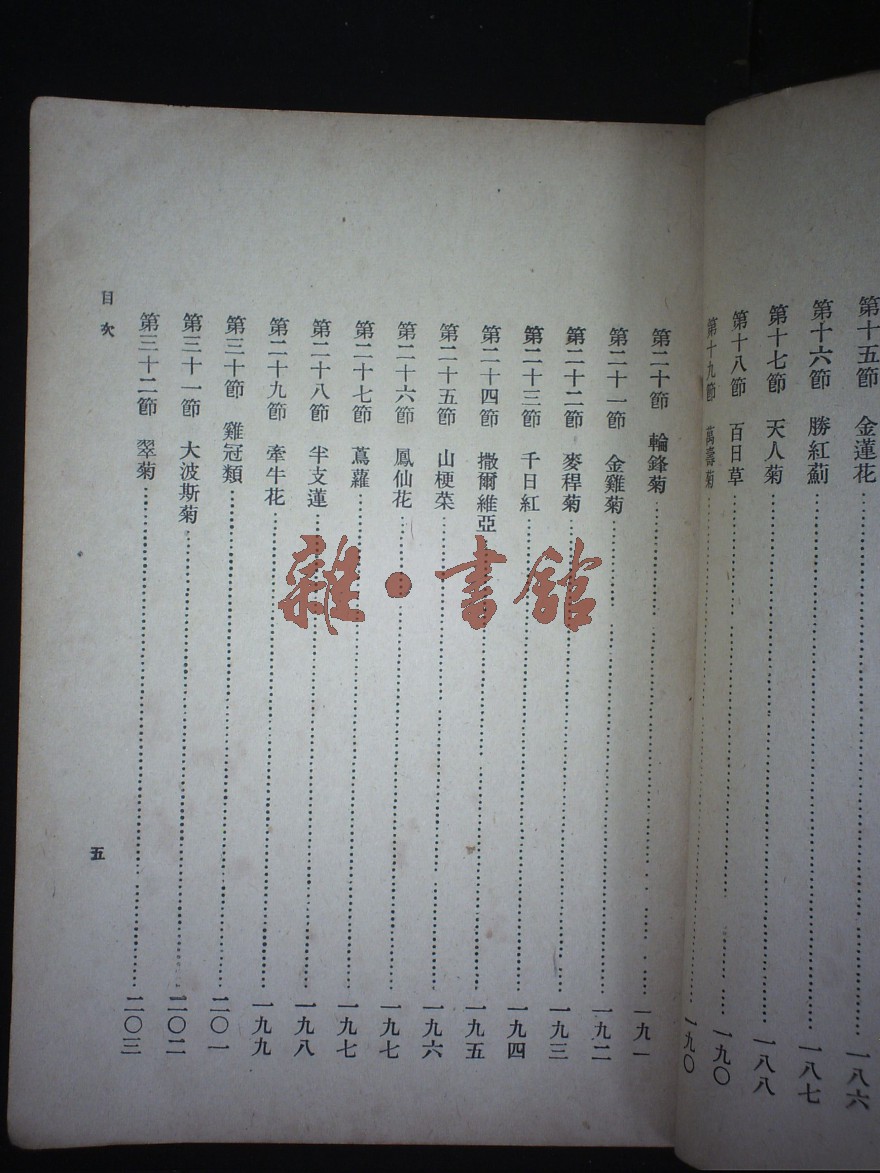 第十五節　金蓮花⋯⋯一八六
第十六節　勝紅薊⋯⋯一八七
第十七節　天人菊⋯⋯一八八
第十八節　百日草⋯⋯一九〇
第十九節　萬壽菊⋯⋯一九〇
第二十節　輪鋒菊⋯⋯一九一
第二十一節　金雞菊⋯⋯一九二
第二十二節　麥稈菊⋯⋯一九三
第二十三節　千日紅⋯⋯一九四
第二十四節　撒爾維亞⋯⋯一九五
第二十五節　山梗菜⋯⋯一九六
第二十六節　鳳仙花⋯⋯一九七
第二十七節　蔦蘿⋯⋯一九七
第二十八節　半支蓮⋯⋯一九八
第二十九節　牽牛花⋯⋯一九九
第三十節　雞冠類⋯⋯二〇一
第三十一節　大波斯菊⋯⋯二〇二
第三十二節　翠菊⋯⋯二〇三
目次
五
雜·書館